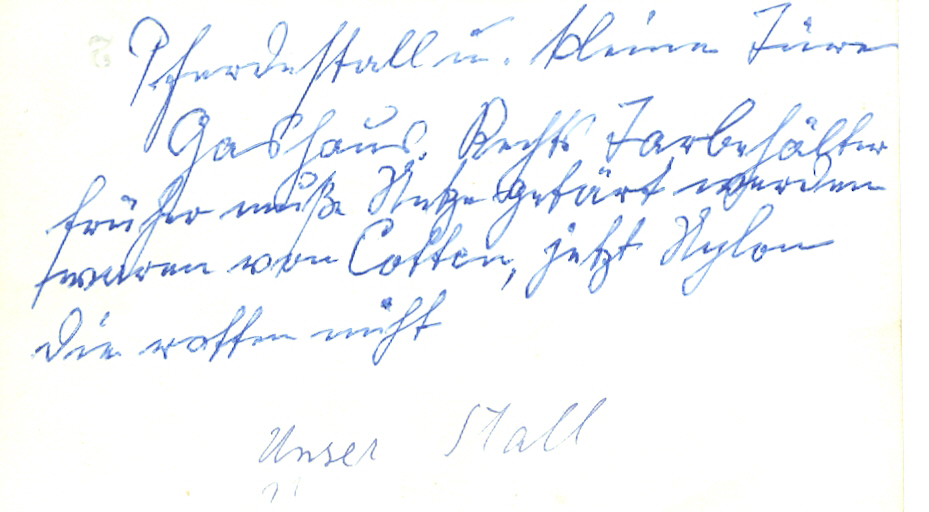 Pferdestall u. kleine Türe
Gashaus. Rechts Farbehälter
früher muße Netze gefärt werden
waren von Cotten, jetzt Nylon
die rotten nicht
Unser Stall